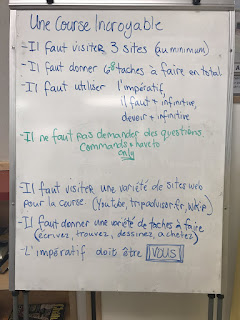 Une Course Incroyable
-Il faut visiter 3 sites (au minimum)
-Il faut donner 8 taches à faire en total
-Il faut utiliser l'impératif,
il faut + infinitive,
devoir + infinitive
-Il ne faut pas demander des questions
Commands + have to
only
-Il faut visiter une variété de sites web
pour la course (Youtube, tripadvisor.fr, Wikip)
-Il faut donner une variété de taches à faire
(écrivez, trouvez, dessinez, achetez)
-L'impératif doit être VOUS